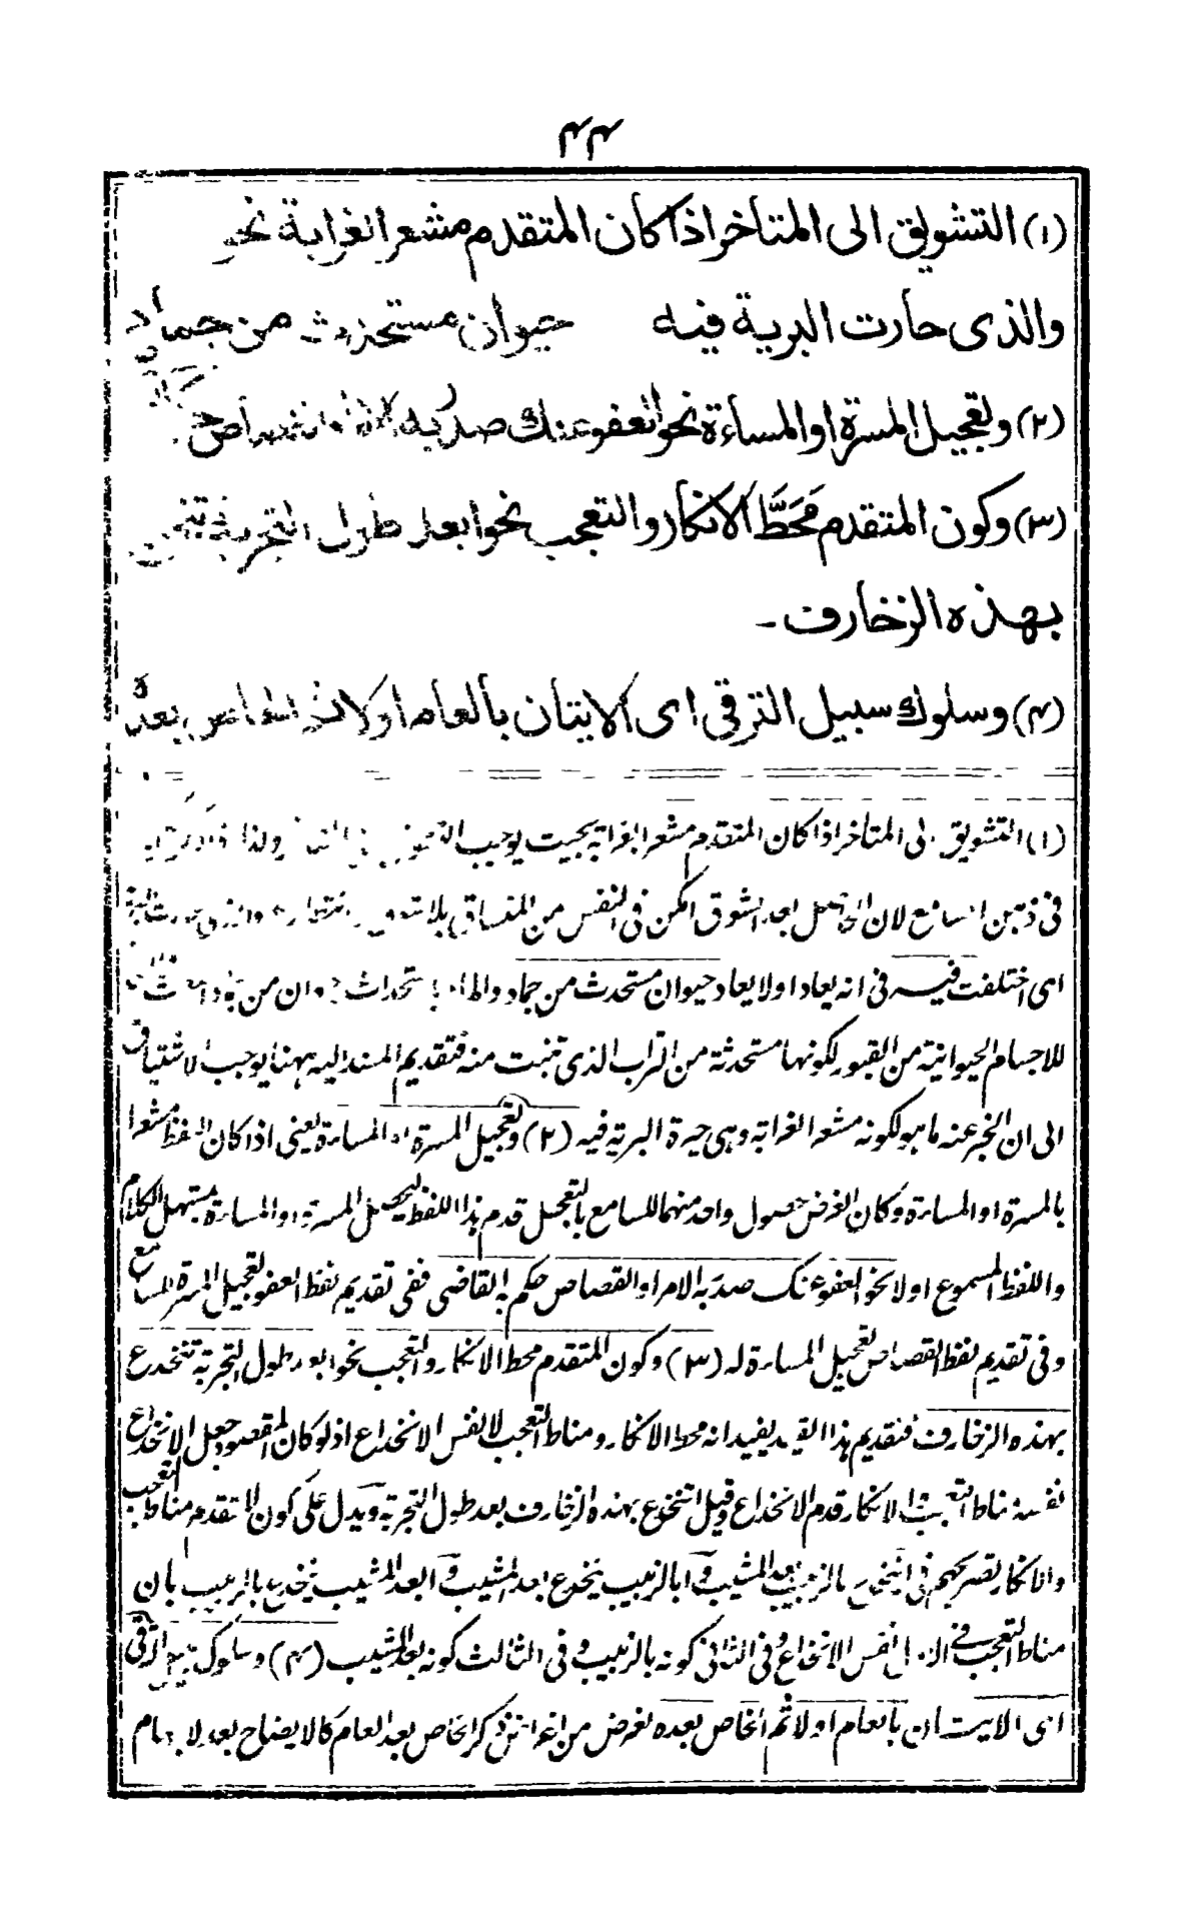 ۴۴
(۱) التشويق الى المتاخر اذا كان المتقدم مشعرا بغرابة نحو
والذى حارت البرية فيه حيوان مستحدث من جماد
(۲) وتعجيل المسرة او المساءة نحو العفو عنك صدر به الامر او القصاص حكم
(۳) وكون المتقدم مَحَطَّ الانكار والتعجب نحو ابعد طول التجربة تنخدع
بهذه الزخارف -
(۴) وسلوك سبيل الترقى اى الاتيان بالعام اولا ثم الخاص بعده
(۱) التشويق الى المتاخر اذا كان المتقدم مشعرا بغرابة بحيث يوجب
فى ذهن السامع لان الحاصل بعد الشوق امكن فى النفس من المنساق بلا تعب وانتظار والذى حارت البرية
اى اختلفت فيه فى انه يعاد اولا يعاد حيوان مستحدث من جماد والمراد باستحداث حيوان من جماد
للاجسام الحيوانية من القبور لكونها مستحدثة من التراب الذى تنبت منه فتقديم المسند اليه ههنا يوجب الاشتياق
الى ان الخبر عنه ما هو لكونه مشعرا لغرابة وهى حيرة البرية فيه (۲) وتعجيل المسرة او المساءة يعنى اذا كان اللفظ مشعرا
بالمسرة او المساءة وكان الغرض حصول واحد منهما للسامع بالتعجيل قدم هذا اللفظ ليحصل المسرة او المساءة بمستهل الكلام
واللفظ المسموع اولا نحو العفو عنك صدر به الامر او القصاص حكم به القاضى ففى تقديم لفظ العفو تعجيل المسرة للسامع
وفى تقديم لفظ القصاص تعجيل المساءة له (۳) وكون المتقدم محط الانكار والتعجب نحو ابعد طول التجربة تنخدع
بهذه الزخارف فتقديم هذا القيد يفيد انه محط الانكار ومناط التعجب لا نفس الانخداع اذ لو كان المقصود جعل الانخداع
نفسه مناط التعجب والانكار قدم الانخداع وقيل اتنخدع بهذه الزخارف بعد طول التجربة ويدل على كون المتقدم مناط التعجب
والانكار تصريحهم فى اتنخدع بالزبيب بعد المشيب و ابالزبيب ينخدع بعد المشيب و ابعد المشيب ينخدع بالزبيب بان
مناط التعجب فى الاول نفس الانخداع وفى الثانى كونه بالزبيب وفى الثالث كونه بعد المشيب (۴) وسلوك سبيل الترقى
اى الاتيان بالعام اولا ثم الخاص بعده لغرض من اغراض ذكر الخاص بعد العام كالايضاح بعد الابهام